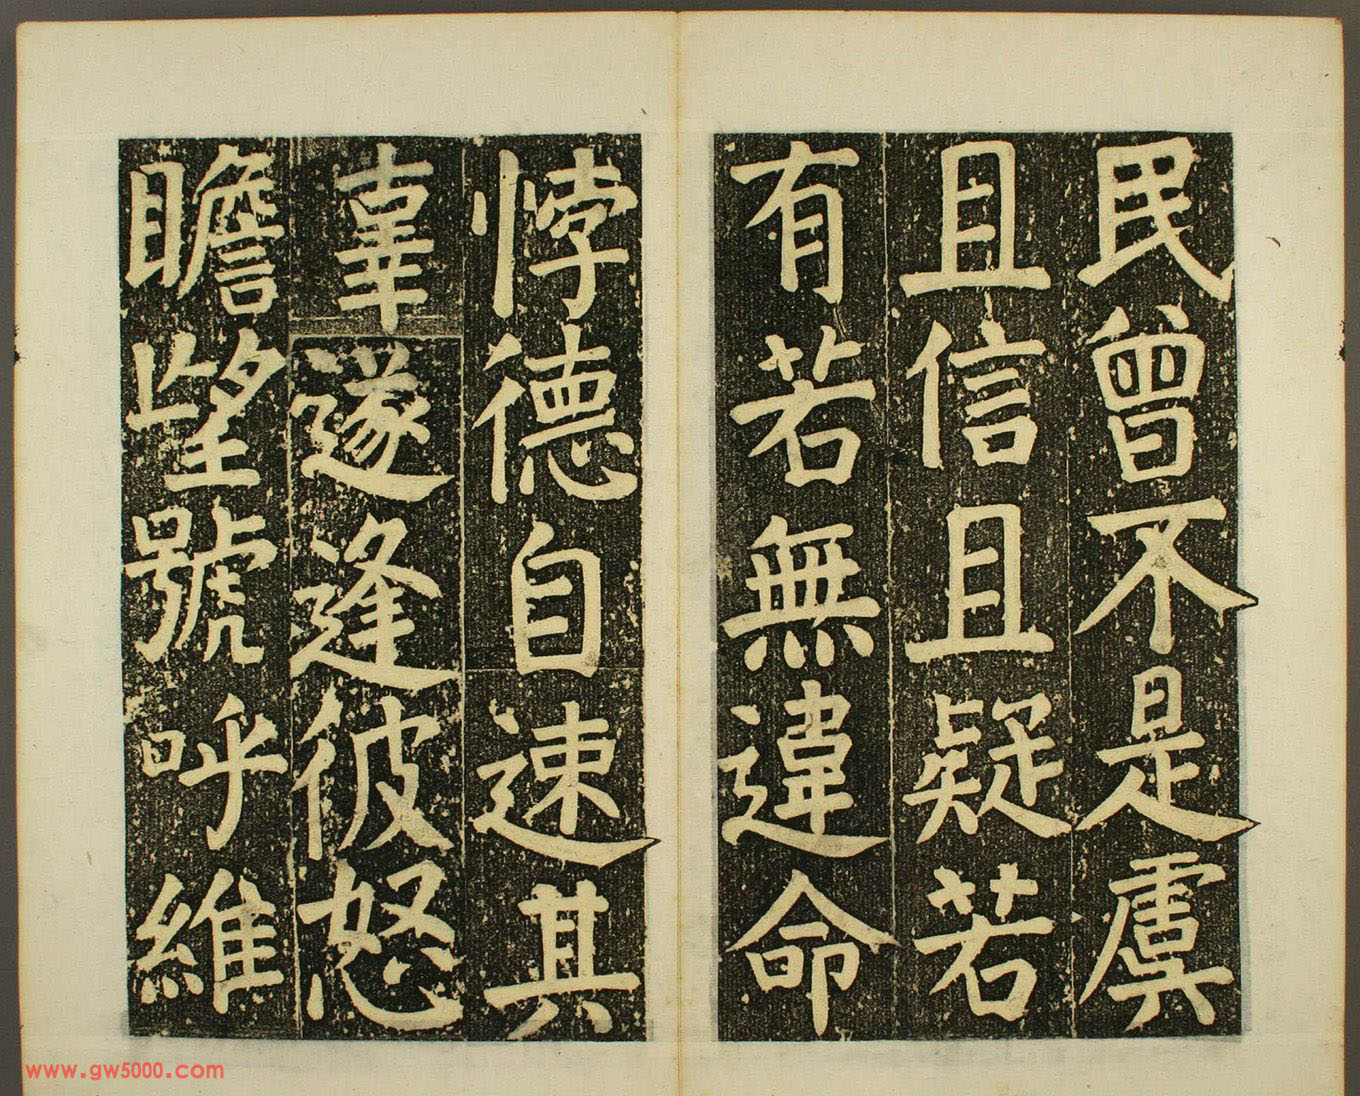 民曾不是虞
且信且疑若
有若無違命
悖德自速其
辜遂逢彼怒
瞻望號呼維
www.gw5000.com